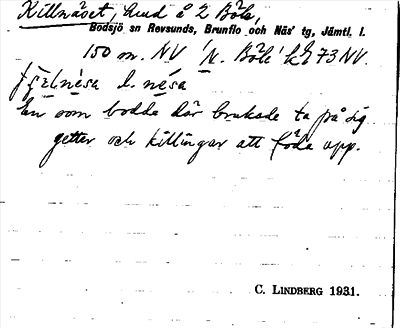 Killnäset, hmd å 2 Böle,
Bodsjö sn Revsunds, Brunflo och Näs' tg, Jämtl. l.
150 m. NV 'N. Böle' k 73 NV.
l. nésa
En som bodde där brukade ta på sig
getter och killingar att föda upp.
C. LINDBERG 1931.